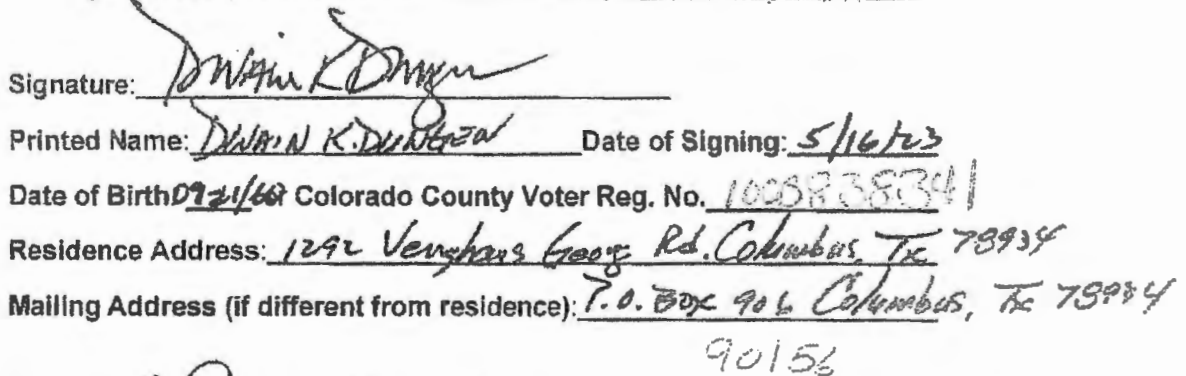 Signature: Dwain K Dungen
Printed Name: DWAIN K. DUNGEN Date of Signing: 5/16/23
Date of Birth 09 Colorado County Voter Reg. No. 1003838341
Residence Address: 1292 Venghaus Rd. Columbus, Tx 78934
Mailing Address (if different from residence): P.O. Box 906 Columbus, Tx 78934
90156